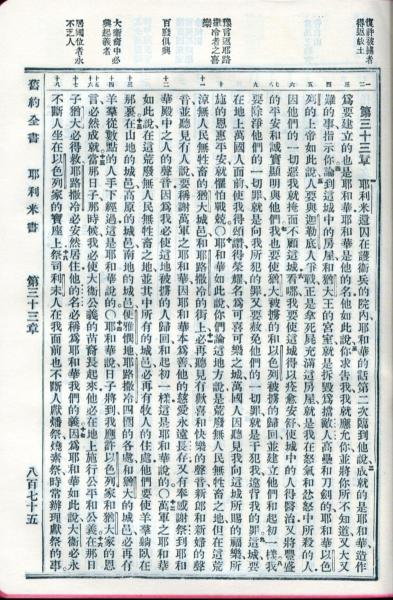 復許被擄者
得返故土
豫言返耶路
撒冷者之喜
樂
百廢俱興
大衛裔中必
興起義者
居國位者永
不乏人
第三十三章　耶利米還囚在護衛兵的院內耶和華的話第二次臨到他說成就的是耶和華造作
爲要建立的也是耶和華耶和華是他的名他如此說你求告我我就應允你並將你所不知道又大又
難的事指示你論到這城中的房屋和猶大王的宮室就是拆毀爲擋敵人高壘和刀劍的耶和華以色
列的上帝如此說人要與迦勒底人爭戰正是拿死屍充滿這房屋就是我在怒氣和忿怒中所殺的人
因他們的一切惡我就掩面不顧這城看哪我要使這城得以痊愈安舒使城中的人得醫治又將豐盛
的平安和誠實顯明與他們我也要使猶大被擄的和以色列被擄的歸回並建立他們和起初一樣我
要除淨他們的一切罪就是向我所犯的罪又要赦免他們的一切罪就是干犯我違背我的罪這城要
在地上萬國人面前使我得頌讚得榮耀名爲可喜可樂之城萬國人因聽見我向這城所賜的福樂所
施的恩惠平安就懼怕戰兢○耶和華如此說你們論這地方說是荒廢無人民無牲畜之地但在這荒
涼無人民無牲畜的猶大城邑和耶路撒冷的街上必再聽見有歡喜和快樂的聲音新郎和新婦的聲
音並聽見有人說要稱謝萬軍之耶和華因耶和華本爲善他的慈愛永遠長存又有奉感謝祭到耶和
華殿中之人的聲音因爲我必使這地被擄的人歸回和起初一樣這是耶和華說的○萬軍之耶和華
如此說在這荒廢無人民無牲畜之地並其中所有的城邑必再有牧人的住處他們要使羊羣躺臥在
那裏在山地的城邑高原的城邑南地的城邑便雅憫地耶路撒冷四圍的各處和猶大的城邑必再有
羊羣從數點的人手下經過這是耶和華說的○耶和華說日子將到我應許以色列家和猶大家的恩
言必然成就當那日子那時候我必使大衛公義的苗裔長起來他必在地上施行公平和公義在那日
子猶大必得救耶路撒冷必安然居住他的名必稱爲耶和華我們的義因爲耶和華如此說大衛必永
不斷人坐在以色列家的寶座上祭司利未人在我面前也不斷人獻燔祭燒素祭時常辦理獻祭的事
舊約全書　耶利米書　第三十三章　八百七十五